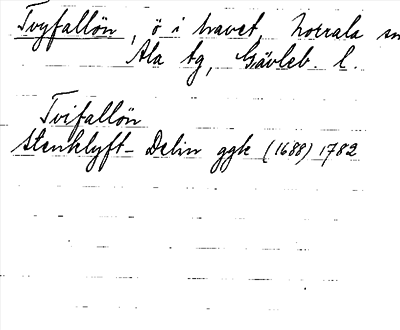 Tvyfallön, ö i havet, Norrala sn
Ala tg, Gävleb. l.
Tvifallön
Stenklyft- Delin ggk (1688) 1782